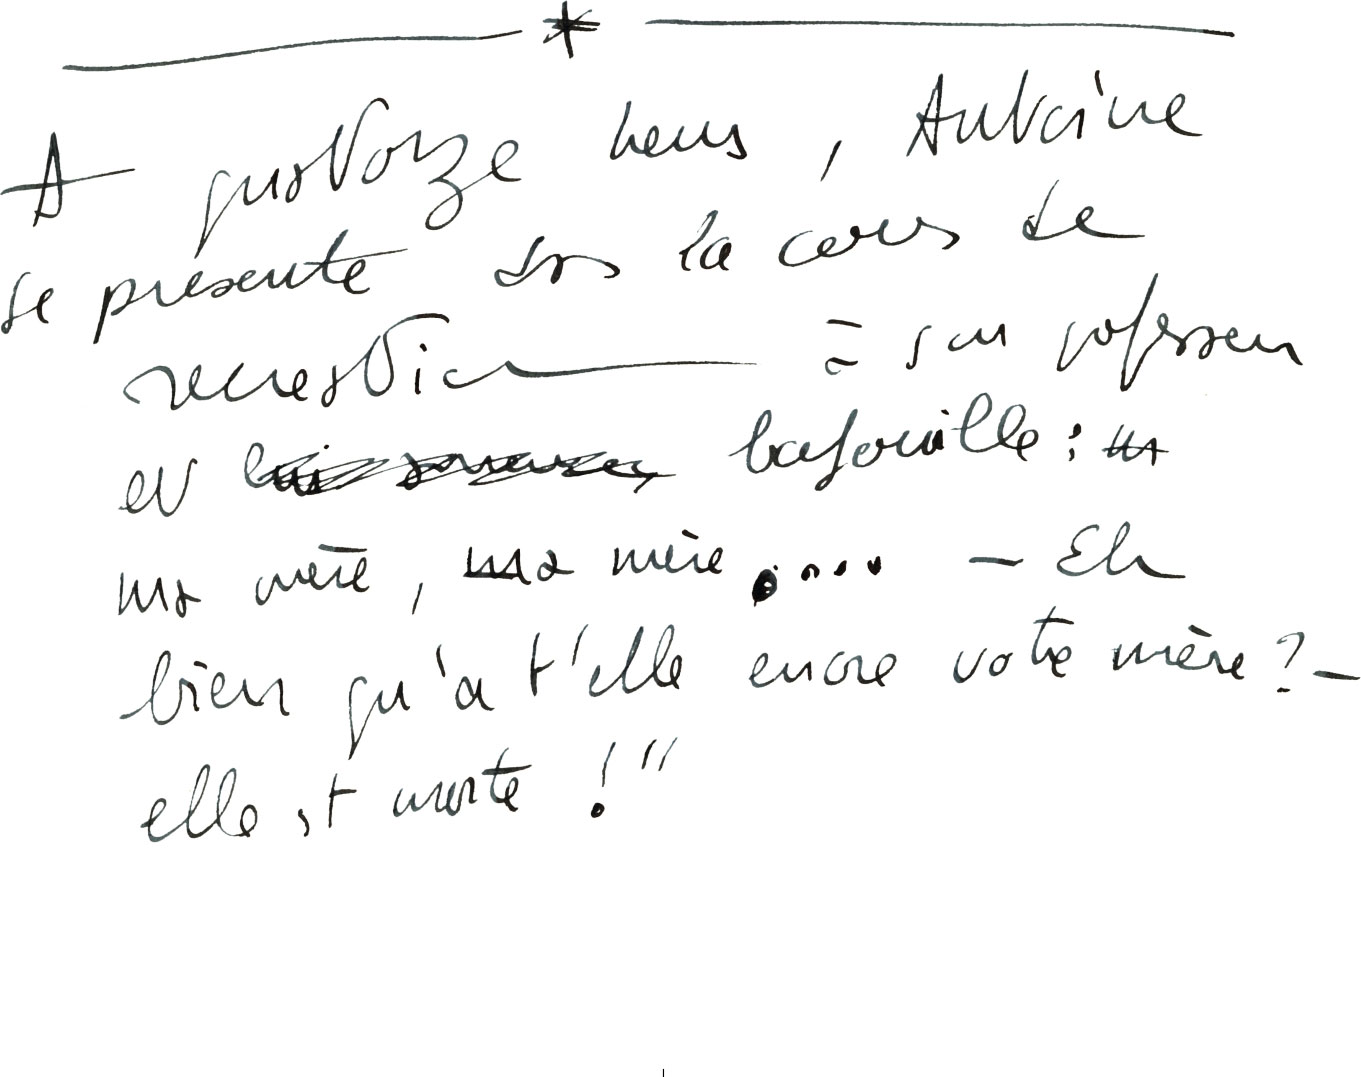 *
A quatorze heures, Antoine
se présente dans la cours de
recréation à son professeur
et bafouille : ma
ma mère, ma mère..... - Eh
bien qu'a t'elle encore votre mère ? -
elle est morte ! "